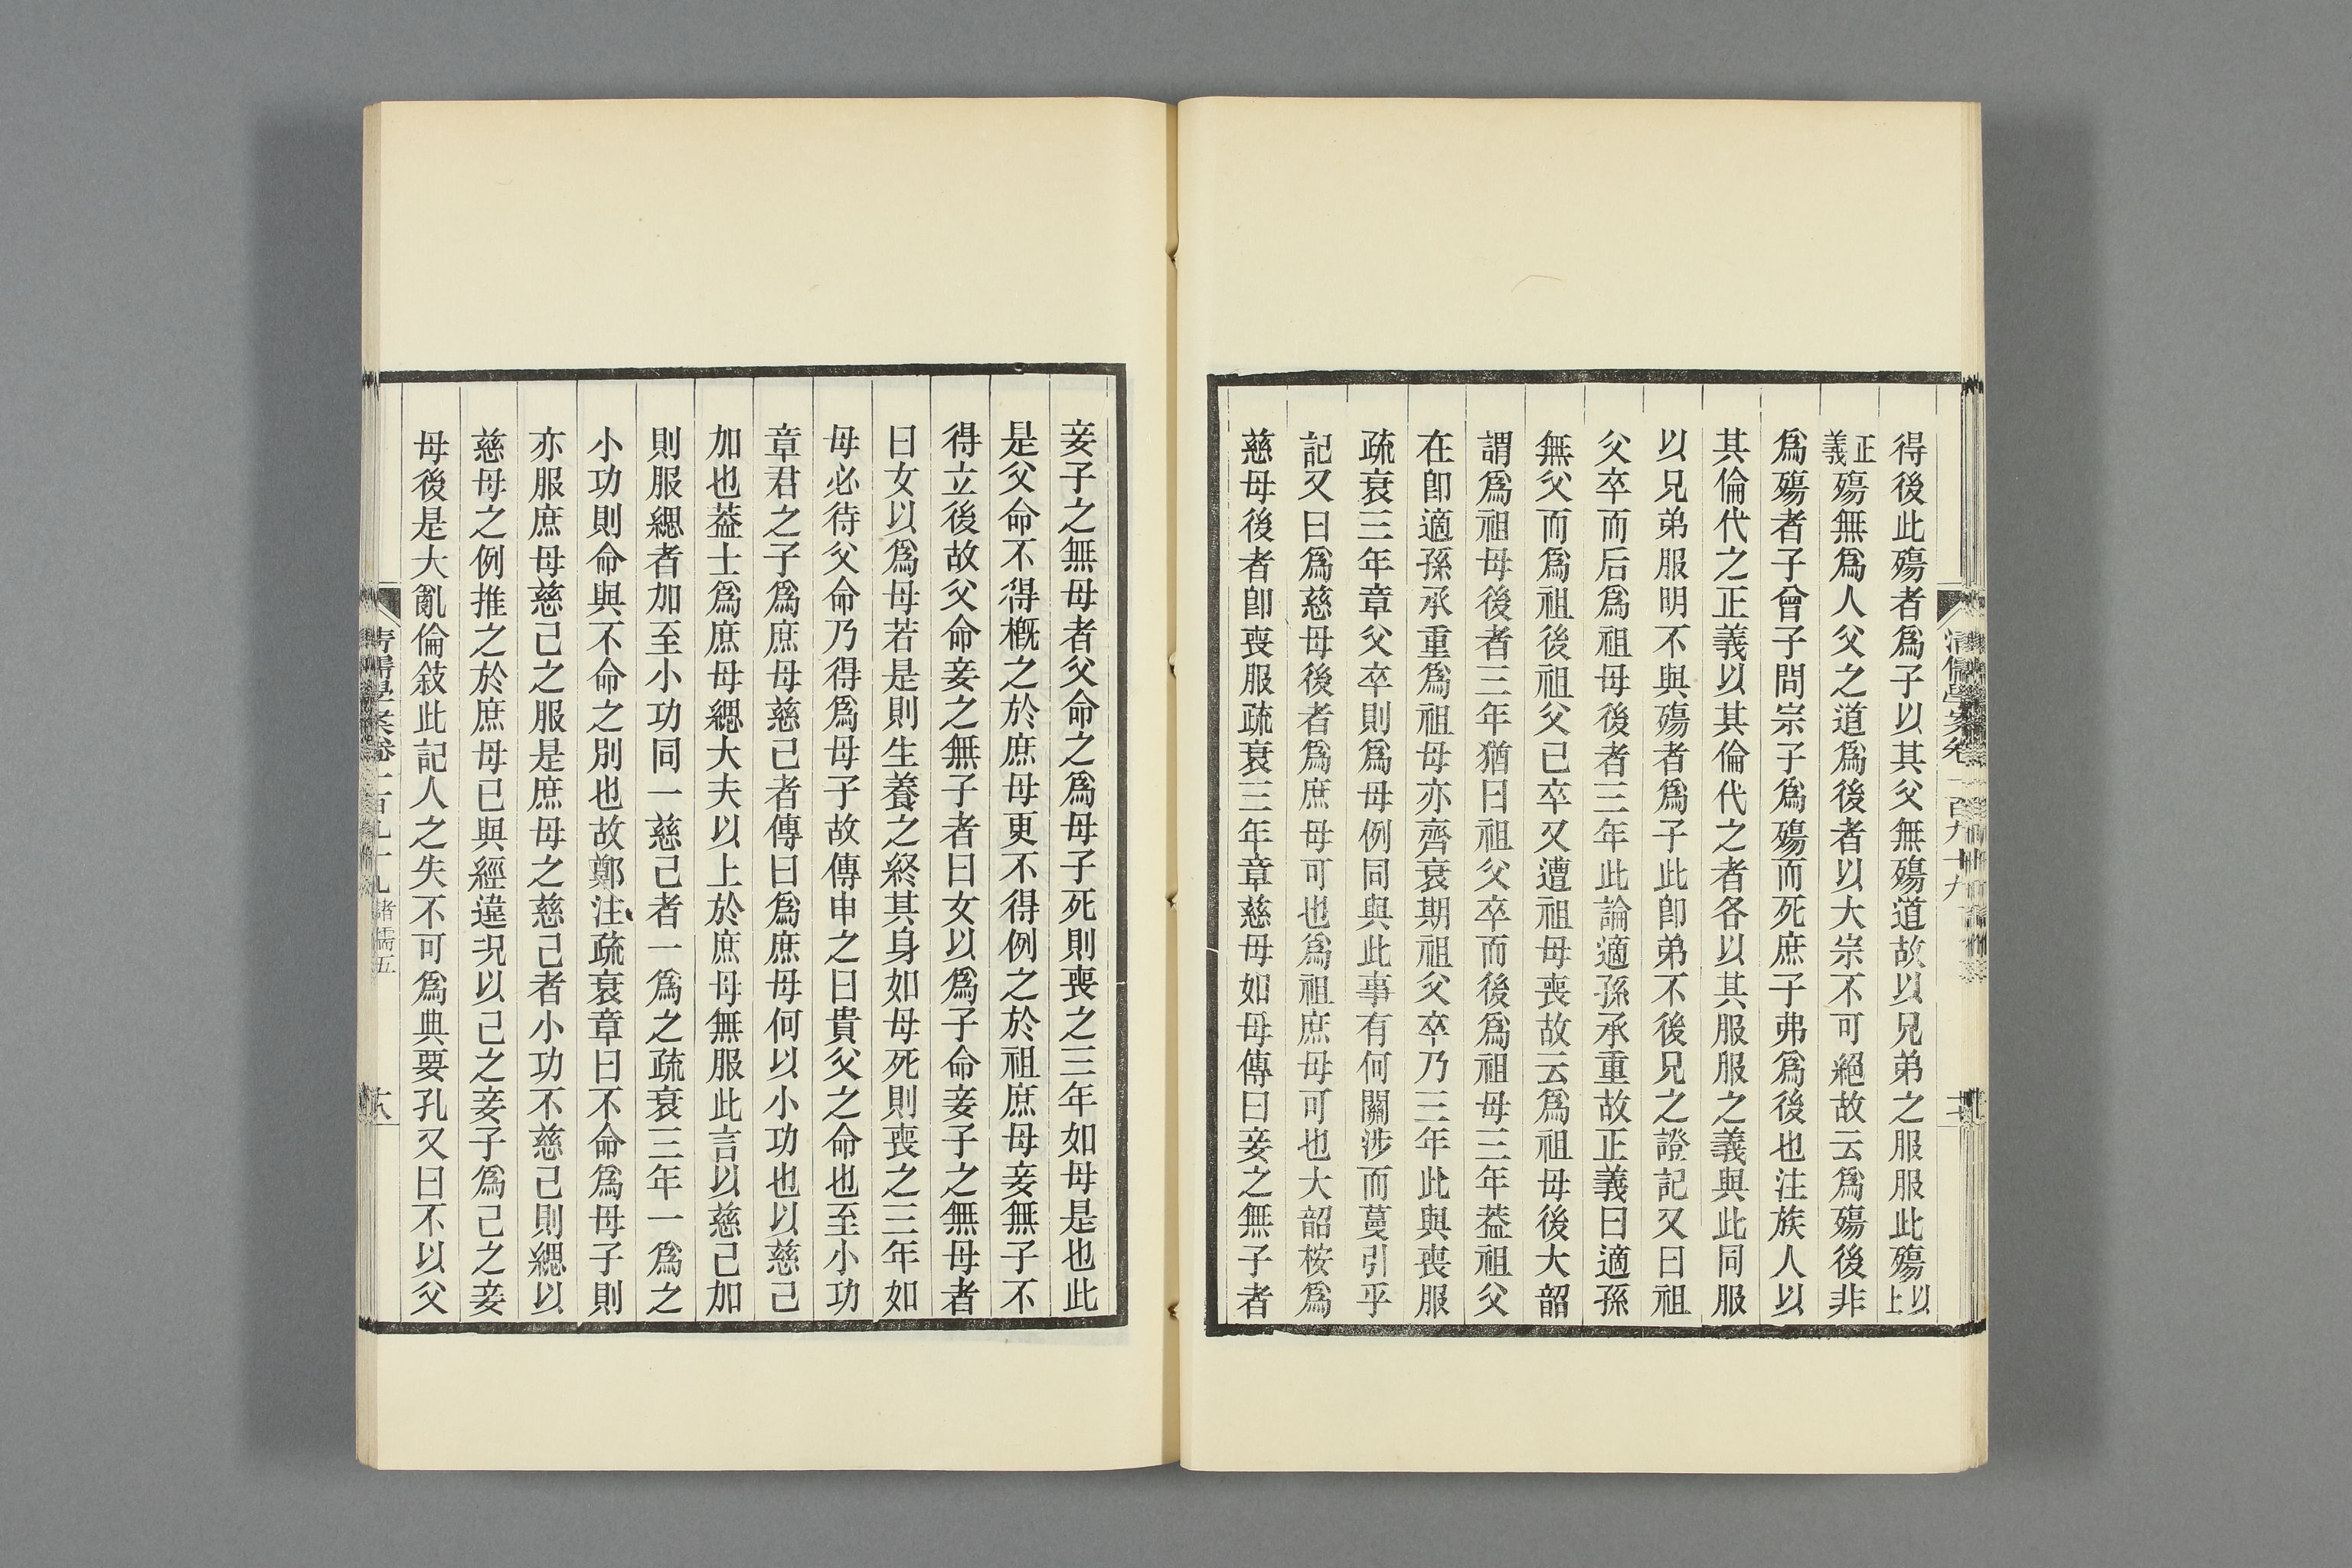 得後此殤者爲子以其父無殤道故以兄弟之服服此殤以上
正義殤無爲人父之道爲後者以大宗不可絕故云爲殤後非
爲殤者子曾子問宗子爲殤而死庶子弗爲後也注族人以
其倫代之正義以其倫代之者各以其服服之義與此同服
以兄弟服明不與殤者爲子此卽弟不後兄之證記又曰祖
父卒而后爲祖母後者三年此論適孫承重故正義曰適孫
無父而爲祖後祖父已卒又遭祖母喪故云爲祖母後大韶
謂爲祖母後者三年猶曰祖父卒而後爲祖母三年葢祖父
在卽適孫承重爲祖母亦齊衰期祖父卒乃三年此與喪服
疏衰三年章父卒則爲母例同與此事有何關涉而蔓引乎
記又曰爲慈母後者爲庶母可也爲祖庶母可也大韶桉爲
慈母後者卽喪服疏衰三年章慈母如母傳曰妾之無子者
清儒學案卷一百九十九
妾子之無母者父命之爲母子死則喪之三年如母是也此
是父命不得槪之於庶母更不得例之於祖庶母妾無子不
得立後故父命妾之無子者曰女以爲子命妾子之無母者
曰女以爲母若是則生養之終其身如母死則喪之三年如
母必待父命乃得爲母子故傳申之曰貴父之命也至小功
章君之子爲庶母慈己者傳曰爲庶母何以小功也以慈己
加也葢士爲庶母緦大夫以上於庶母無服此言以慈己加
則服緦者加至小功同一慈己者一爲之疏衰三年一爲之
小功則命與不命之別也故鄭注疏衰章曰不命爲母子則
亦服庶母慈己之服是庶母之慈己者小功不慈己則緦以
慈母之例推之於庶母已與經違況以己之妾子爲己之妾
母後是大亂倫敍此記人之失不可爲典要孔又曰不以父
清儒學案卷一百九十九 諸儒五
十八